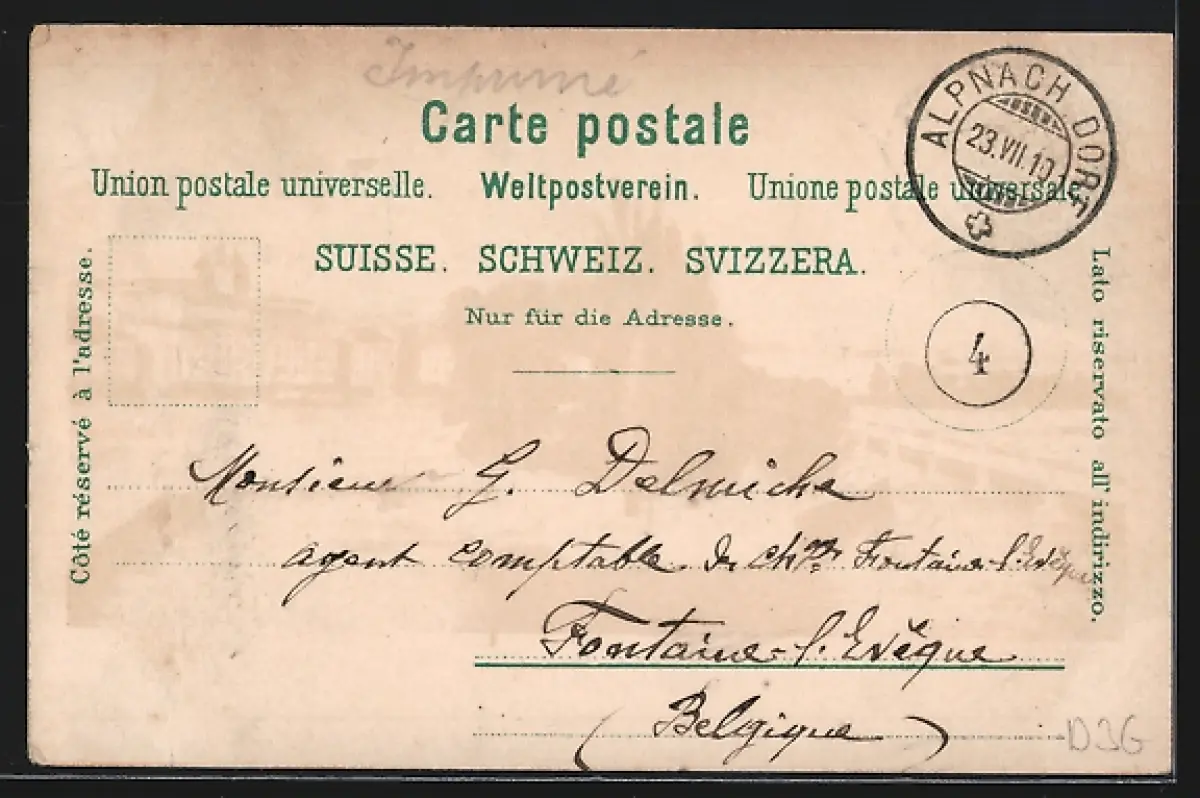 Imprimé
Carte postale
Union postale universelle. Weltpostverein. Unione postale universale
SUISSE. SCHWEIZ. SVIZZERA.
Nur für die Adresse.
ALPNACH DORF
23.VII.10
4
Côté réservé à l'adresse.
Lato riservato all' indirizzo.
Monsieur G. Delmiche
agent comptable Fontaine-l'Evêque
Fontaine-l'Evêque
(Belgique)
D3G